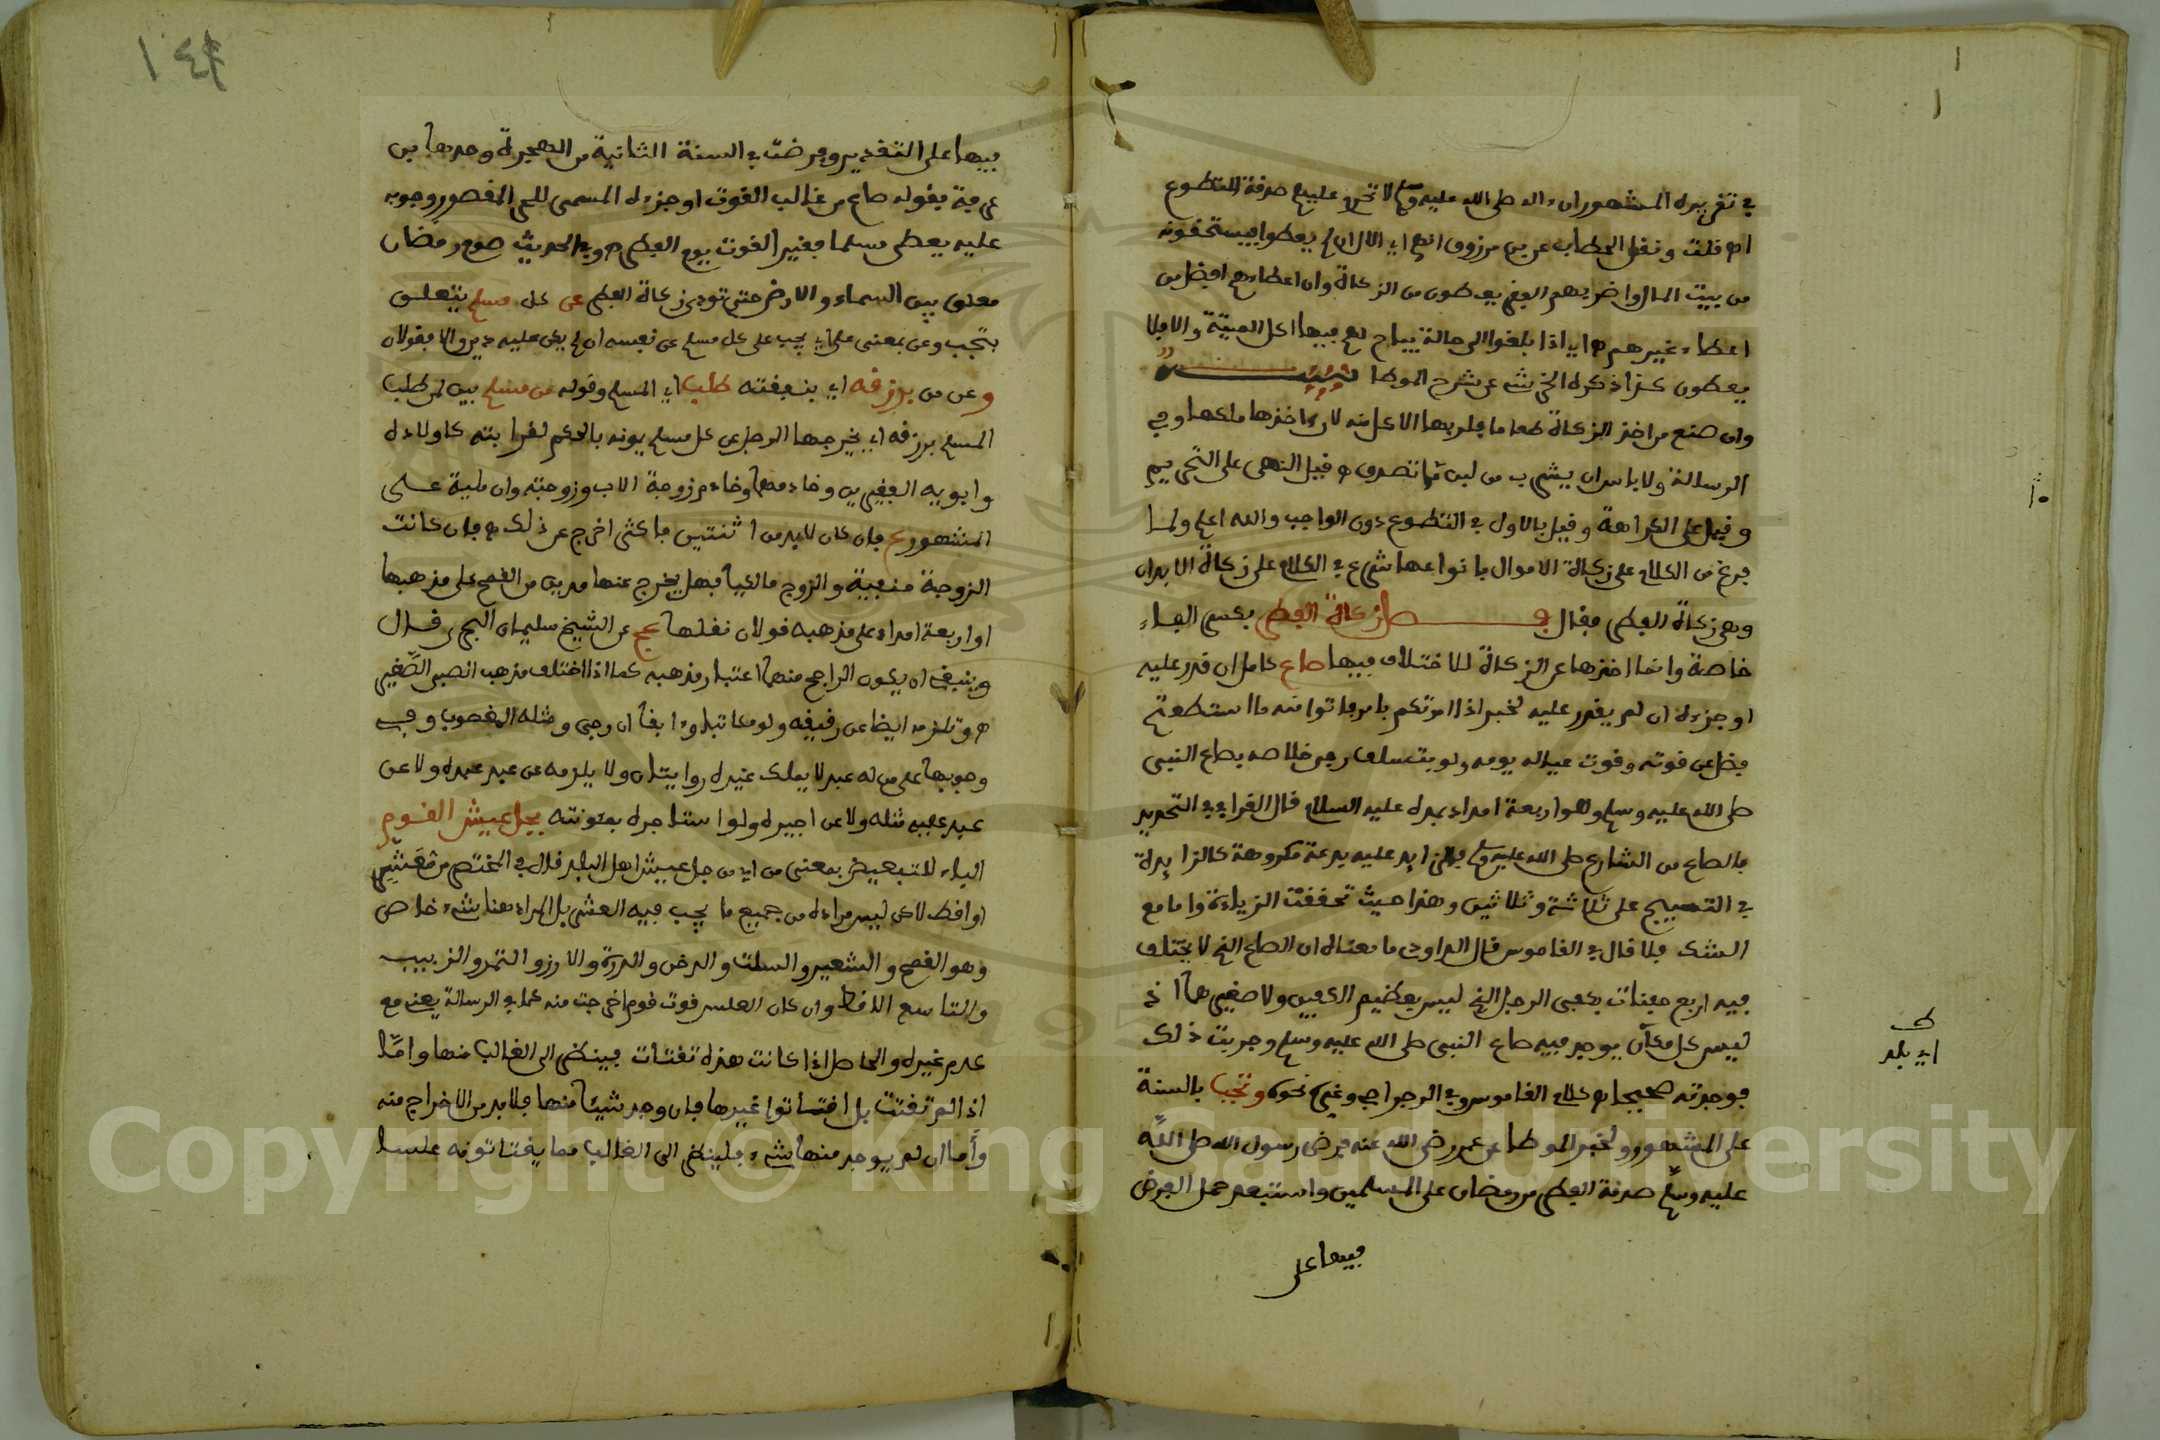 في تقريره المشهور ان ءاله صلى الله عليه وسلم لا تحرم عليهم صدقة التطوع
اه قلت ونقل الحطاب عن بن مرزوق انهم اي الال ان لم يعطوا ما يستحقونه
من بيت المال واضر بهم الفقر يعطون من الزكاة وان اعطاءهم افضل من
اعطاء غيرهم اه اي اذا بلغوا الى حالة يباح لهم فيها اكل الميتة والا فلا
يعطون كذا ذكره الخرشي عن شرح الموطا
وان صنع من اخذ الزكاة طعاما فلربها الاكل منه لان اخذها ملكها وفي
الرسالة ولا باس ان يشرب من لبن ما تصدق به وقيل النهي على التحريم
وقيل على الكراهة وقيل بالاول في التطوع دون الواجب والله اعلم ولما
فرغ من الكلام على زكاة الاموال بانواعها شرع في الكلام على زكاة الابدان
وهي زكاة الفطر فقال فصل زكاة الفطر بكسر الفاء
خاصة وانما اخرها عن الزكاة للاختلاف فيها صاع كامل ان قدر عليه
او جزءه ان لم يقدر عليه لخبر اذا امرتكم بامر فاتوا منه ما استطعتم
فضل عن قوته وقوت عياله يومه ولو بتسلف رجى خلاصه بصاع النبي
صلى الله عليه وسلم وهو اربعة امداد بمده عليه السلام قال القرافي التحديد
بالصاع من الشارع صلى الله عليه وسلم فالزايد عليه بدعة مكروهة كالزايدة
في التسبيح على ثلاثة وثلاثين وهذا حيث تحققت الزيادة واما مع
الشك فلا قال في القاموس قال الداودي ما معناه ان الصاع الذي لا يختلف
فيه اربع حفنات بكفي الرجل الذي ليس بعظيم الكفين ولا صغيرهما اذ
ليس كل مكان يوجد فيه صاع النبي صلى الله عليه وسلم وجربت ذلك
فوجدته صحيحا اه كلام القاموس وفي الرجراجي وغيره نحوه وتجب بالسنة
على المشهور ولخبر الموطا عن عمر رضي الله عنه فرض رسول الله صلى الله
عليه وسلم صدقة الفطر من رمضان على المسلمين واستبعد حمل الفرض
فيها على
اي بلد
فيها على التقدير وفرضت في السنة الثانية من الهجرة وحدها بن
عرفة بقوله صاع من غالب القوت او جزءه المسمى للجزء المقصور وجوبه
عليه يعطى مسلما فقيرا لقوت يوم الفطر اه وفي الحديث صوم رمضان
معلق بين السماء والارض حتى تودى زكاة الفطر عن كل مسلم يتعلق
بتجب وعن بمعنى على اي يجب على كل مسلم عن نفسه ان لم يكن عليه دين والا فقولان
وعن من برزقه اي بنفقته طلب اي المسلم وقوله من مسلم بين لمن طلب
المسلم برزقه اي يخرجها الرجل عن كل مسلم يمونه بالحكم لقرابته كاولاده
وابويه الفقيرين وخادمهما وخادم زوجة الاب وزوجته وان ملية على
المشهور فان كان لا بد من اثنتين فاكثر اخرج عن ذلك اه فان كانت
الزوجة حنفية والزوج مالكيا فهل يخرج عنها مدين من القمح على مذهبها
او اربعة امداد على مذهبه قولان نقلهما عج عن الشيخ سليمان البحيري قال
وينبغي ان يكون الراجح منهما اعتبار مذهبه كما اذا اختلف مذهب الصبي الصغير
اه وتلزمه ايضا عن رقيقه ولو مكاتبا وءابقا ان رجي ومثله المغصوب وفي
وجوبها على من له عبد لا يملك غيره روايتان ولا يلزمه عن عبد عبده ولا عن
عبد عبيد مثله ولا عن اجيره ولو استاجره بمئونته بجل عيش القوم
الباء للتبعيض بمعنى من اي من جل عيش اهل البلد قال في المختصر من معشر
او اقط لاكن ليس مراده من جميع ما يجب فيه العشر بل المراد هنا شيء خاص
وهو القمح والشعير والسلت والدخن والذرة والارز والتمر والزبيب
والتاسع الاقط وان كان العلس قوت قوم اخرجت منه كما في الرسالة يعني مع
عدم غيره والحاصل اذا كانت هذه تقتات فينظر الى الغالب منها واما
اذا لم تقتت بل اقتاتوا غيرها فان وجد شيئا منها فلا بد من الاخراج منه
واما ان لم يوجد منها شيء فلينظر الى الغالب مما يقتاتونه علسا
Copyright © King Saud University